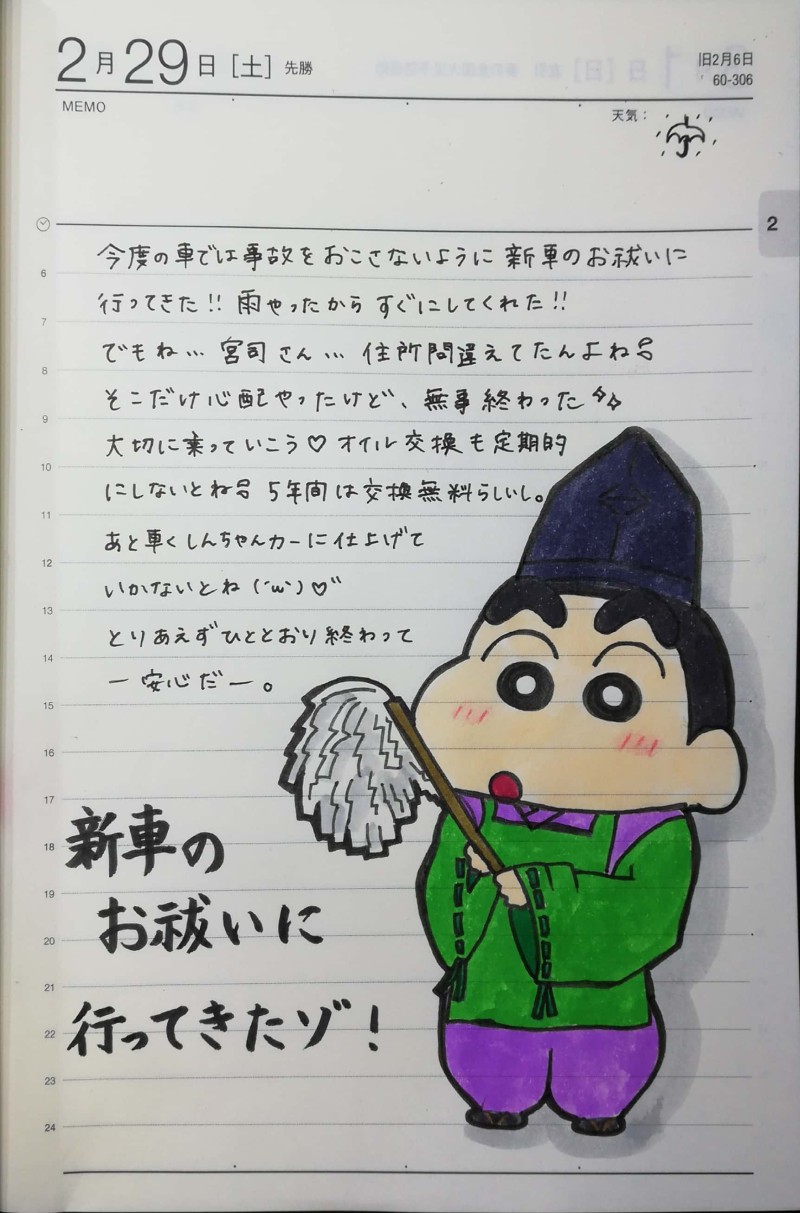 2月29日［土］先勝
旧2月6日
60-306
MEMO
天気：
2
今度の車では事故をおこさないように新車のお祓いに
行ってきた!!雨やったからすぐにしてくれた!!
でもね…宮司さん…住所間違えてたんよね
そこだけ心配やったけど、無事終わった
大切に乗っていこう♡オイル交換も定期的
にしないとね 5年間は交換無料らしいし。
あと車くしんちゃんカーに仕上げて
いかないとね(´ω`)♡
とりあえずひととおり終わって
一安心だー。
6
7
8
9
10
11
12
13
14
15
16
17
18
19
20
21
22
23
24
新車の
お祓いに
行ってきたゾ！